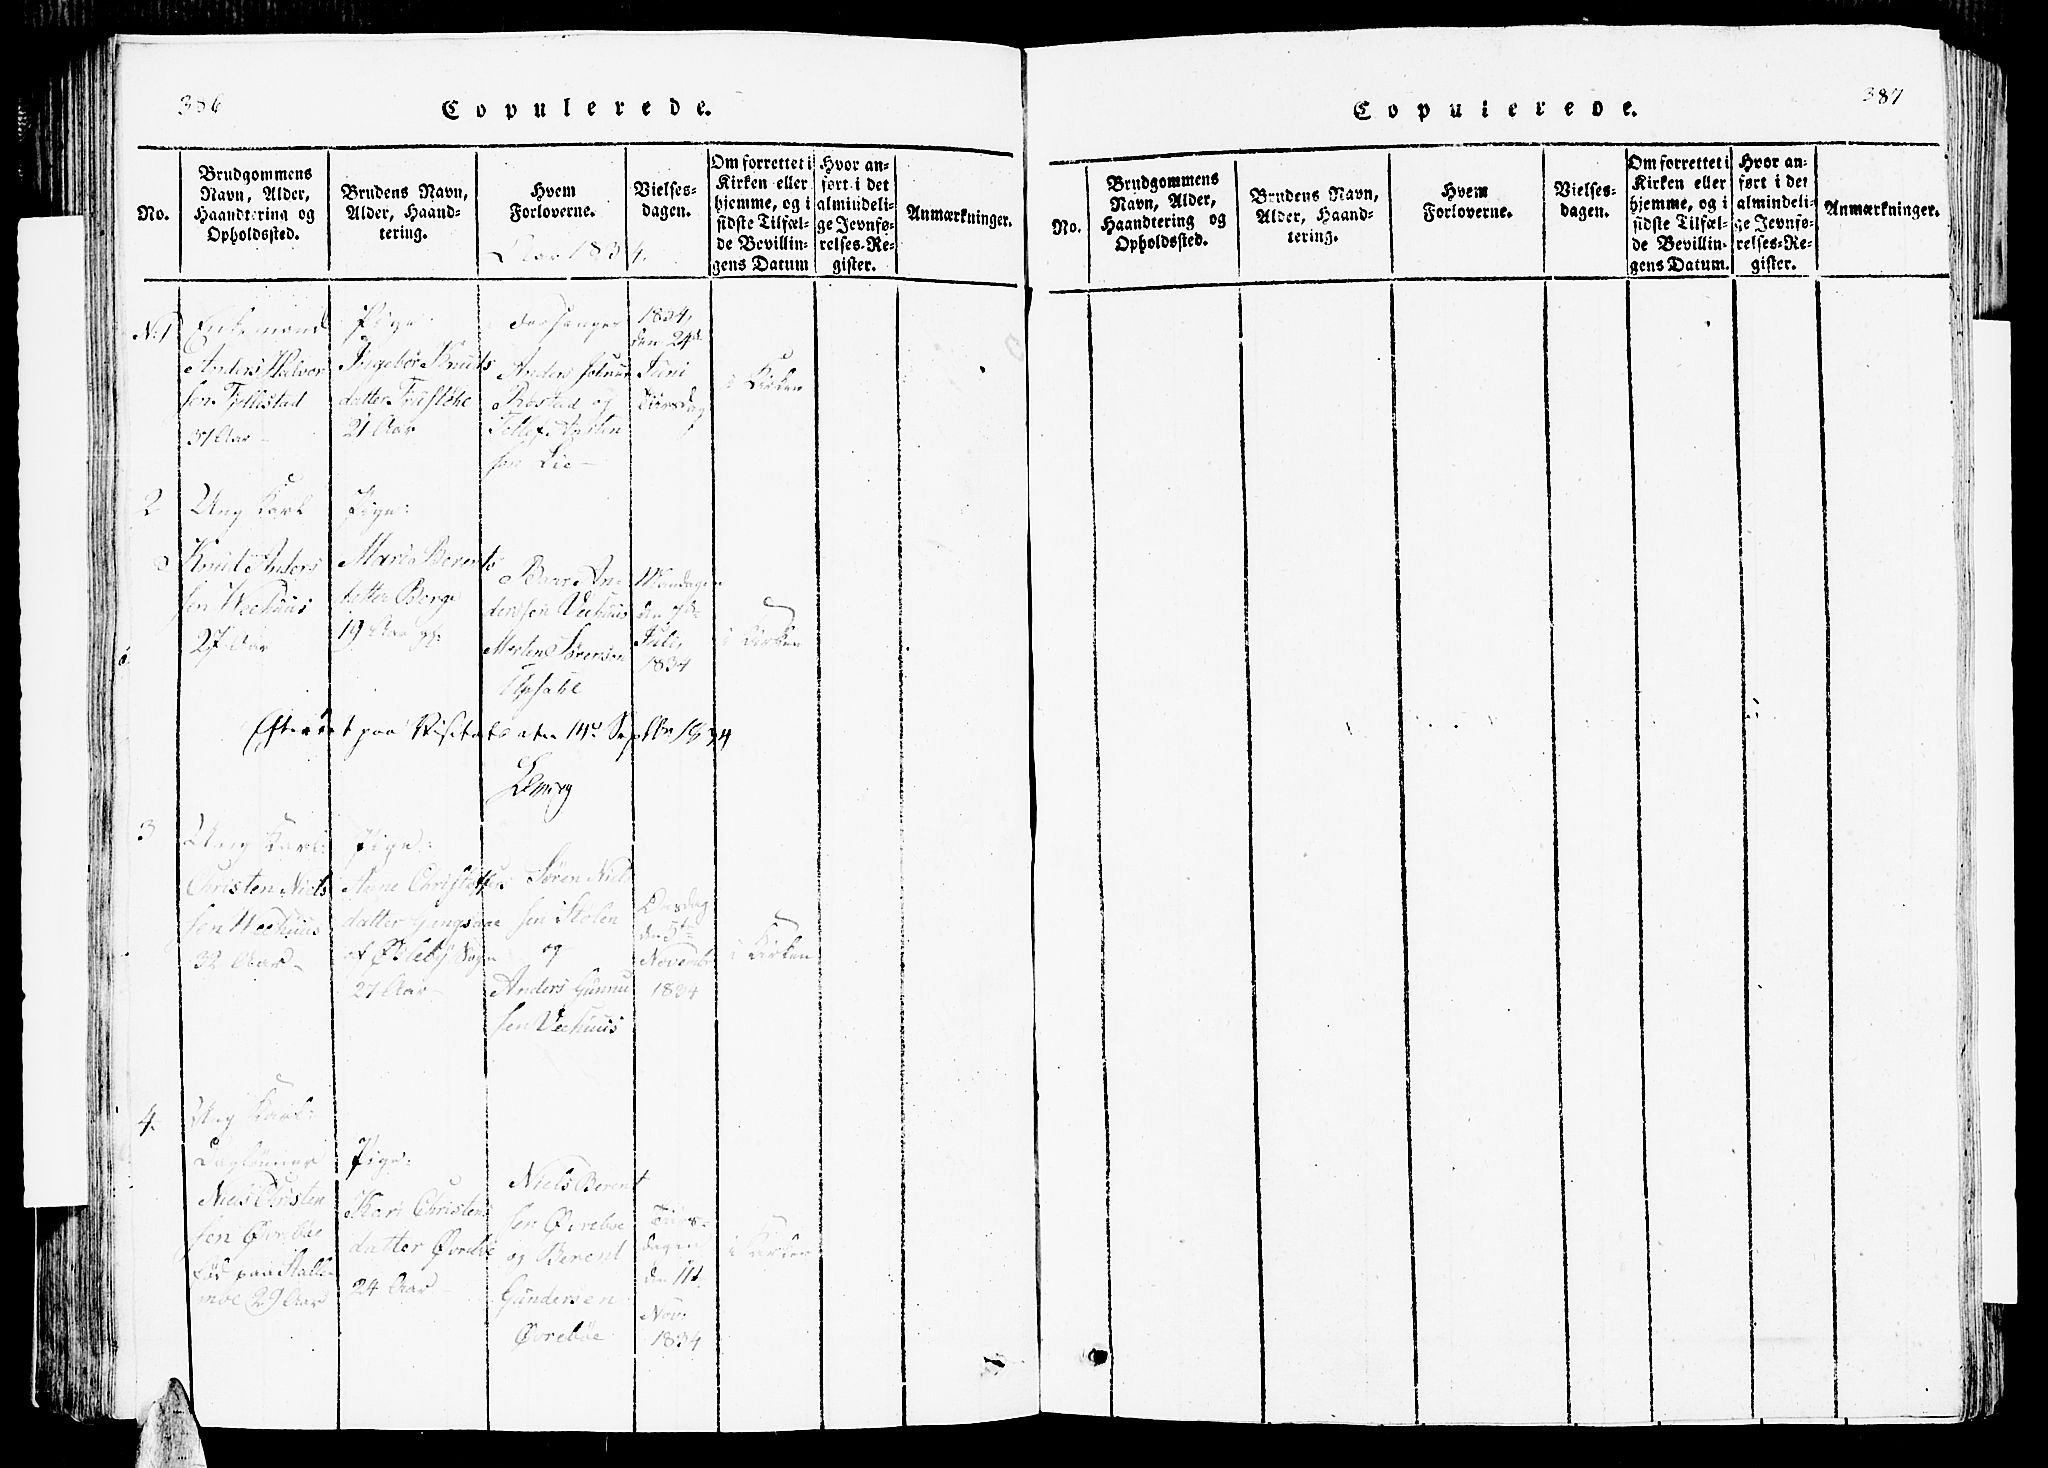 386
Copulerede.
No.
Brudgommens
Navn, Alder,
Haandtering og
Opholdssted.
Brudens Navn,
Alder, Haand-
tering.
Hvem
Forloverne.
Vielses-
dagen.
Om forrettet i
Kirken eller
hjemme, og i
sidste Tilfæl-
de Bevillin-
gens Datum
Hvor an-
ført i det
almindeli-
ge Jevnfø-
relses-Re-
gister.
Anmærkninger.
Aar 1834.
N: 1
Enkemand
Anders Halvor
sen Fjellstad
37 Aar
Pige
Ingebor Knuts
datter
21 Aar
Anders
og
Lie
1834,
den 24de
Juni
Tirsdag
i Kirken
2
Ung Karl
Knut Anders
sen Weehuus
27 Aar
Pige:
Maria Berents
datter Berge
19 Aar gl:
An-
dersen Veehuus
Morten Sørensen
Mandagen
den 7de
Juli,
1834
i Kirken
Efterseet paa Visitats den 14d Septbr 1834
3
Ung Karl:
Christen Niels
sen Weehuus
32 Aar
Pige:
Anne Christophers
datter
af Øslebÿ Sogn
27 Aar
Søren Niels
sen Stølen
og
Anders Gunnu
sen Veehuus
Onsdag
den 5te
Novembr
1834
i Kirken
4.
Ung Karl:
Daglønner
Niels Christen
sen Øvrebøe
29 Aar
Pige:
Kari Christens
datter Øvrebøe
24 Aar
Niels Berent
sen Øvrebøe
og Berent
Gundersen
Øvrebøe
Tirs-
dagen
den 11te
Nov:
1834
i Kirken
387
Copulerede.
No.
Brudgommens
Navn, Alder,
Haandtering og
Opholdssted.
Brudens Navn,
Alder, Haand-
tering.
Hvem
Forloverne.
Vielses-
dagen.
Om forrettet i
Kirken eller
hjemme, og i
sidste Tilfæl-
de Bevillin-
gens Datum.
Hvor an-
ført i det
almindeli-
ge Jevnfø-
relses-Re-
gister.
Anmærkninger.